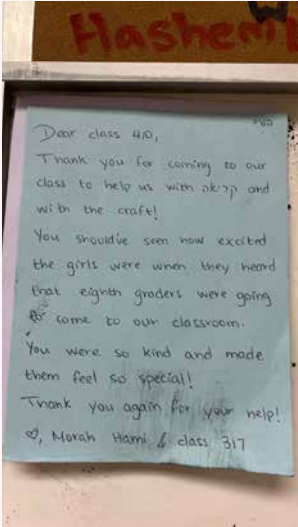 Hashem
בס"ד
Dear class 410,
Thank you for coming to our
class to help us with קריאה and
with the craft!
You should've seen how excited
the girls were when they heard
that eighth graders were going
to come to our classroom.
You were so kind and made
them feel so special!
Thank you again for your help!
♡, Morah Hami & class 317